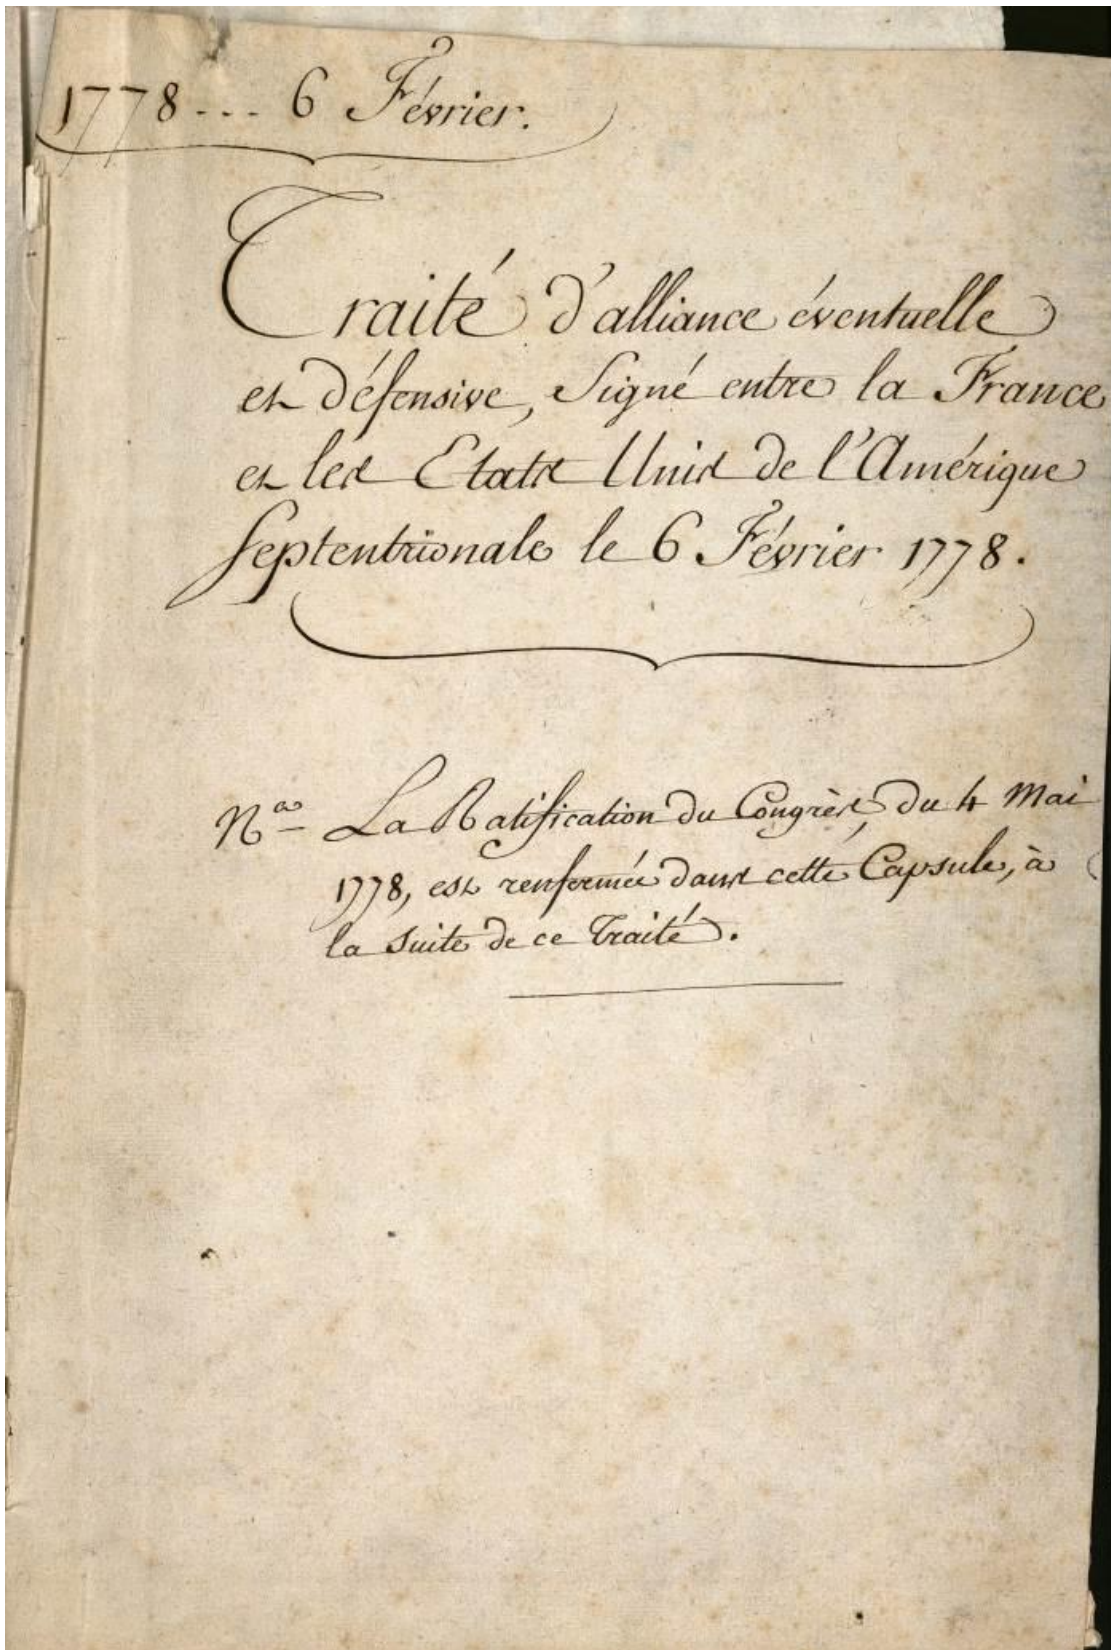 1778 . . . 6 Février.
Traité d'alliance éventuelle
et défensive, Signé entre la France
et les Etats Unis de l'Amérique
Septentrionale le 6 Février 1778.
Nᵃ La Ratification du Congrès, du 4 Mai
1778, est renfermée dans cette Capsule, à
la suite de ce Traité.